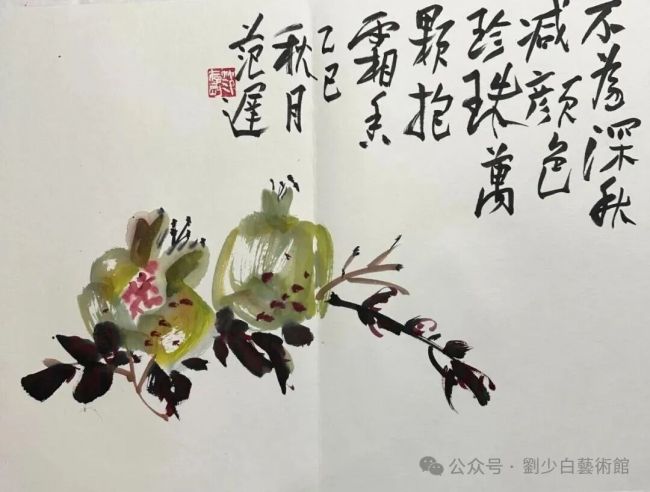 不為深秋
减顏色
珍珠萬
顆抱
霜香
乙巳
秋月
范遲
公众号 · 劉少白藝術館